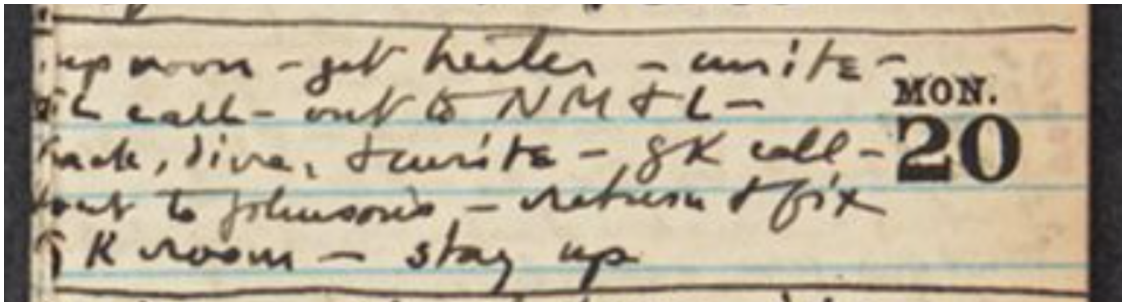 up noon - get heater - write -
call - out to N M & L -
back, dine, & write - GK call -
out to Johnson's - return & fix
G K room - stay up
MON.
20